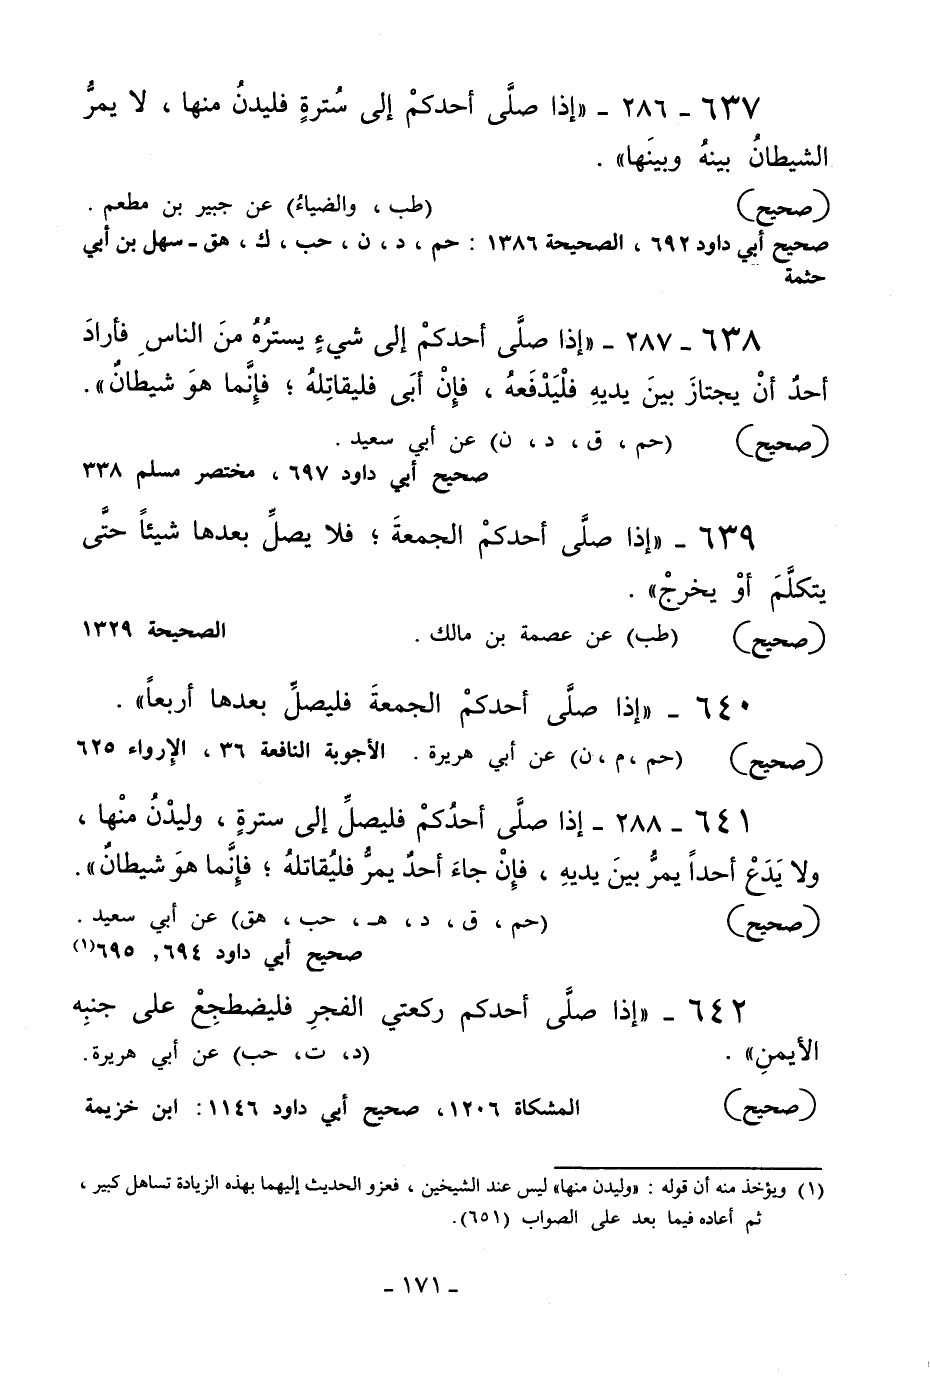 ٦٣٧ - ٢٨٦ - «إذا صلَّى أحدكمْ إلى سُترةٍ فليدنُ منها ، لا يمرُّ
الشيطانُ بينهُ وبينَها» .
(صحيح) (طب ، والضياءُ) عن جبير بن مطعم .
صحيح أبي داود ٦٩٢ ، الصحيحة ١٣٨٦ : حم ، د ، ن ، حب ، ك ، هق - سهل بن أبي
حثمة
٦٣٨ - ٢٨٧ - «إذا صلَّى أحدكمْ إلى شيءٍ يسترُهُ منَ الناسِ فأرادَ
أحدٌ أنْ يجتازَ بينَ يديهِ فلْيَدْفَعهُ ، فإنْ أبَى فليقاتِلهُ ؛ فإنَّما هوَ شيطانٌ» .
(صحيح) (حم ، ق ، د ، ن) عن أبي سعيد .
صحيح أبي داود ٦٩٧ ، مختصر مسلم ٣٣٨
٦٣٩ - «إذا صلَّى أحدكمْ الجمعةَ ؛ فلا يصلِّ بعدها شيئاً حتَّى
يتكلَّمَ أوْ يخرجْ» .
(صحيح) (طب) عن عصمة بن مالك . الصحيحة ١٣٢٩
٦٤٠ - «إذا صلَّى أحدكمْ الجمعةَ فليصلِّ بعدها أربعاً» .
(صحيح) (حم ،م ،ن) عن أبي هريرة . الأجوبة النافعة ٣٦ ، الإرواء ٦٢٥
٦٤١ - ٢٨٨ - إذا صلَّى أحدُكمْ فليصلِّ إلى سترةٍ ، وليدْنُ منْها ،
ولا يَدَعْ أحداً يمرُّ بينَ يديهِ ، فإنْ جاءَ أحدٌ يمرُّ فليُقاتلهُ ؛ فإنَّما هوَ شيطانٌ» .
(صحيح) (حم ، ق ، د ، هـ ، حب ، هق) عن أبي سعيد .
صحيح أبي داود ٦٩٤, ٦٩٥(١)
٦٤٢ - «إذا صلَّى أحدكم ركعتي الفجرِ فليضطجِعْ على جنبِه
الأيمنِ» . (د، ت، حب) عن أبي هريرة.
(صحيح) المشكاة ١٢٠٦، صحيح أبي داود ١١٤٦: ابن خزيمة
(١) ويؤخذ منه أن قوله : «وليدن منها» ليس عند الشيخين ، فعزو الحديث إليهما بهذه الزيادة تساهل كبير ،
ثم أعاده فيما بعد على الصواب (٦٥١).
- ١٧١ -